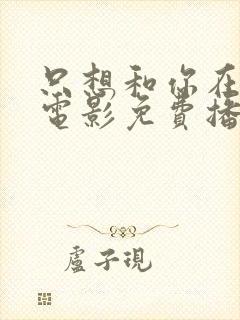 只想和你在
電影免費播
盧子現